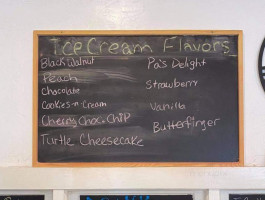 Ice Cream Flavors
Black Walnut
Peach
Chocolate
Cookies-n-Cream
Cherry Choc. Chip
Turtle Cheesecake
Pa's Delight
Strawberry
Vanilla
Butterfinger